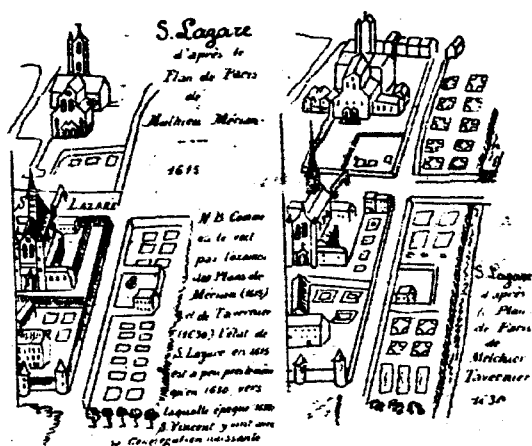 S. Lazare
d'après le
Plan de Paris
de
Mathieu Mérian
1615
LAZARE
N.B. Comme
on le voit
par l'examen
des Plans de
Mérian (1615)
et de Tavernier
(1630) l'état de
S. Lazare en 1615
est a peu près le même
qu'en 1630, vers
laquelle époque
S. Vincent y vint avec
sa Congrégation naissante
S. Lazare
d'après
le Plan
de Paris
de
Melchior
Tavernier
1630